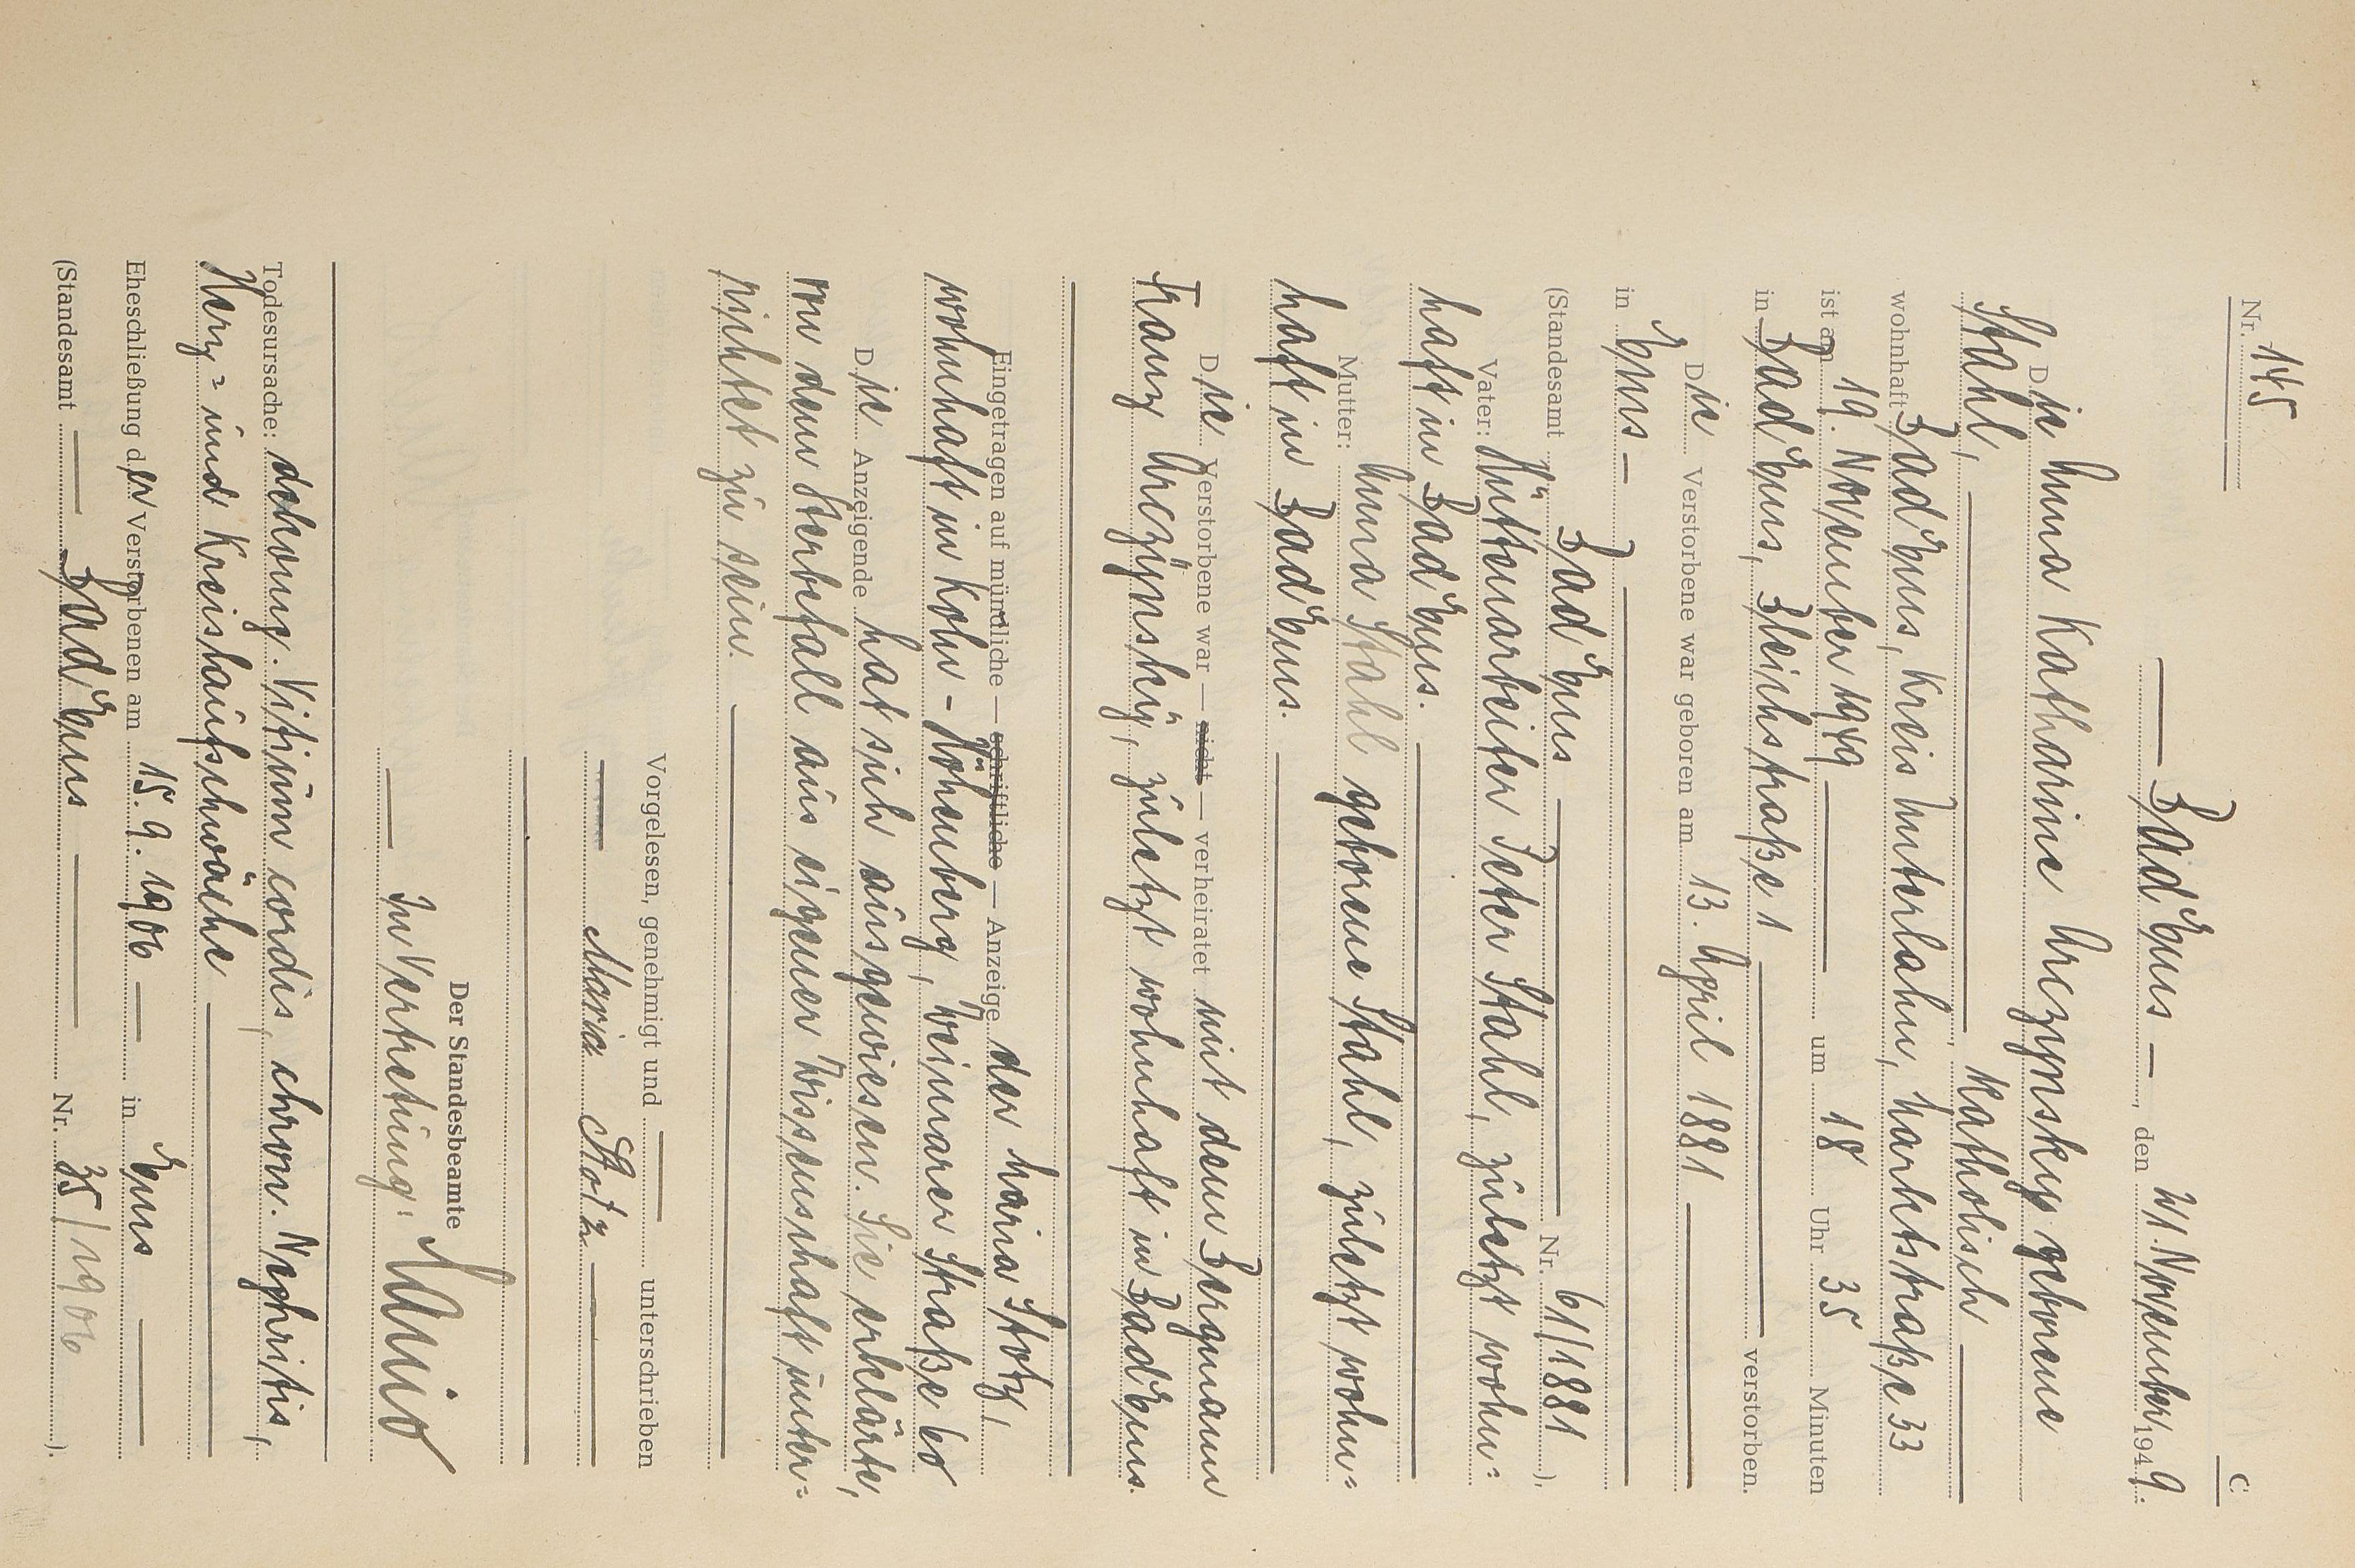 Nr. 145
C
Bad Ems, den 21. November 1949.
Die Anna Katharine Arczynsky geborene
Stahl, Katholisch
wohnhaft Bad Ems, Kreis Unterlahn, Marktstraße 33
ist am 19. November 1949 um 18 Uhr 35 Minuten
in Bad Ems, Bleichstraße 1 verstorben.
Die Verstorbene war geboren am 13. April 1881
in Ems
(Standesamt Bad Ems Nr. 61/1881).
Vater: Hüttenarbeiter Peter Stahl, zuletzt wohn=
haft in Bad Ems.
Mutter: Anna Stahl geborene Stahl, zuletzt wohn=
haft in Bad Ems.
Die Verstorbene war — nicht — verheiratet mit dem Bergmann
Franz Arczÿnskÿ, zuletzt wohnhaft in Bad Ems.
Eingetragen auf mündliche — schriftliche — Anzeige der Maria Stotz,
wohnhaft in Köln - Höhenberg, Weimarer Straße 60
Die Anzeigende hat sich ausgewiesen. Sie erklärte,
von dem Sterbefall aus eigener Wissenschaft unter=
richtet zu sein.
Vorgelesen, genehmigt und unterschrieben
Maria Stotz
Der Standesbeamte
In Vertretung:
Todesursache: dekomp. Vitium cordis, chron. Nephritis,
Herz= und Kreislaufschwäche
Eheschließung der Verstorbenen am 15. 9. 1906 in Ems
(Standesamt Bad Ems Nr. 35/1906).